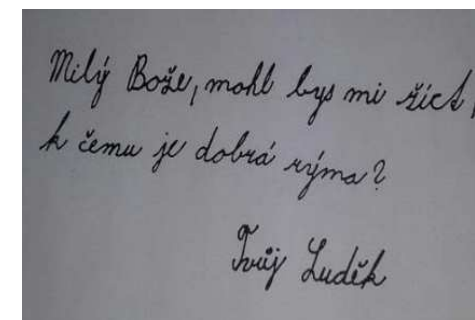 Milý Bože, mohl bys mi žíct,
k čemu je dobrá rýma?
Tvůj Luděk